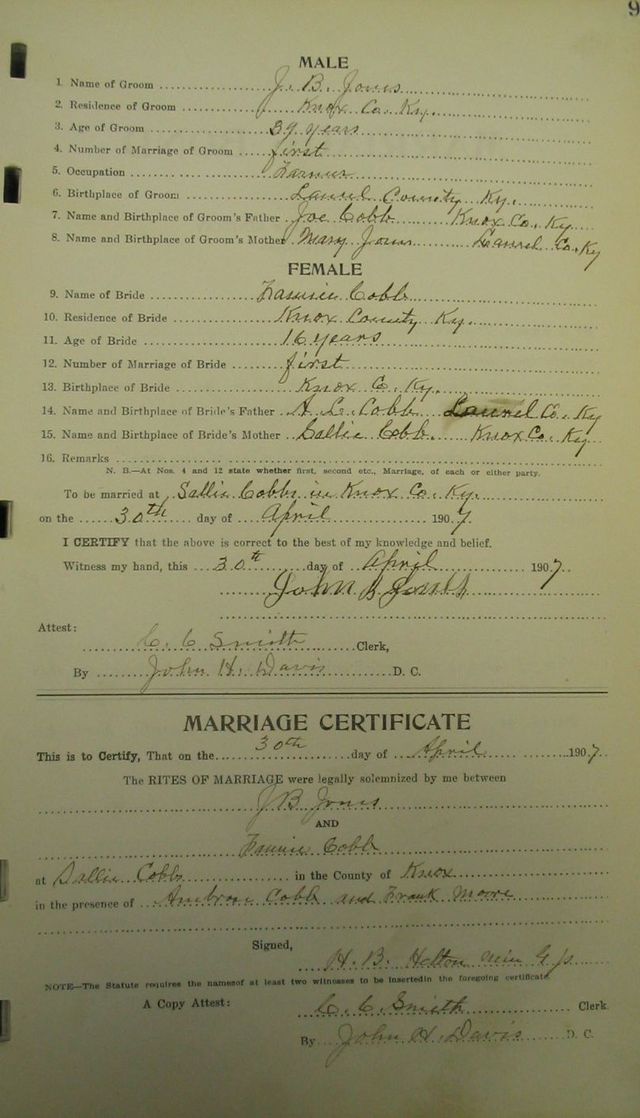 9
MALE
1. Name of Groom J. B. Jones
2. Residence of Groom Knox Co. Ky.
3. Age of Groom 39 years
4. Number of Marriage of Groom first
5. Occupation Farmer
6. Birthplace of Groom Laurel County Ky.
7. Name and Birthplace of Groom's Father Joe Cobb Knox Co. Ky
8. Name and Birthplace of Groom's Mother Mary Jones Laurel Co. Ky
FEMALE
9. Name of Bride Fannie Cobb
10. Residence of Bride Knox County Ky.
11. Age of Bride 16 years
12. Number of Marriage of Bride first
13. Birthplace of Bride Knox C. Ky.
14. Name and Birthplace of Bride's Father A. L. Cobb Laurel Co. Ky
15. Name and Birthplace of Bride's Mother Callie Cobb. Knox Co. Ky
16. Remarks
N. B.—At Nos. 4 and 12 state whether first, second etc., Marriage, of each or either party.
To be married at Sallie Cobbs in Knox Co. Ky.
on the 30th day of April 1907.
I CERTIFY that the above is correct to the best of my knowledge and belief.
Witness my hand, this 30th day of April 1907.
John B Jones
Attest:
C. C Smith Clerk,
By John H. Davis D. C.
MARRIAGE CERTIFICATE
This is to Certify, That on the 30th day of April 1907.
The RITES OF MARRIAGE were legally solemnized by me between
J B Jones
AND
Fannie Cobb
at Sallie Cobbs in the County of Knox
in the presence of Ambrose Cobb and Frank Moore
Signed,
H. B. Helton Min G
NOTE—The Statute requires the namesof at least two witnesses to be insertedin the foregoing certificate.
A Copy Attest: C. C. Smith Clerk
By John H. Davis D. C.